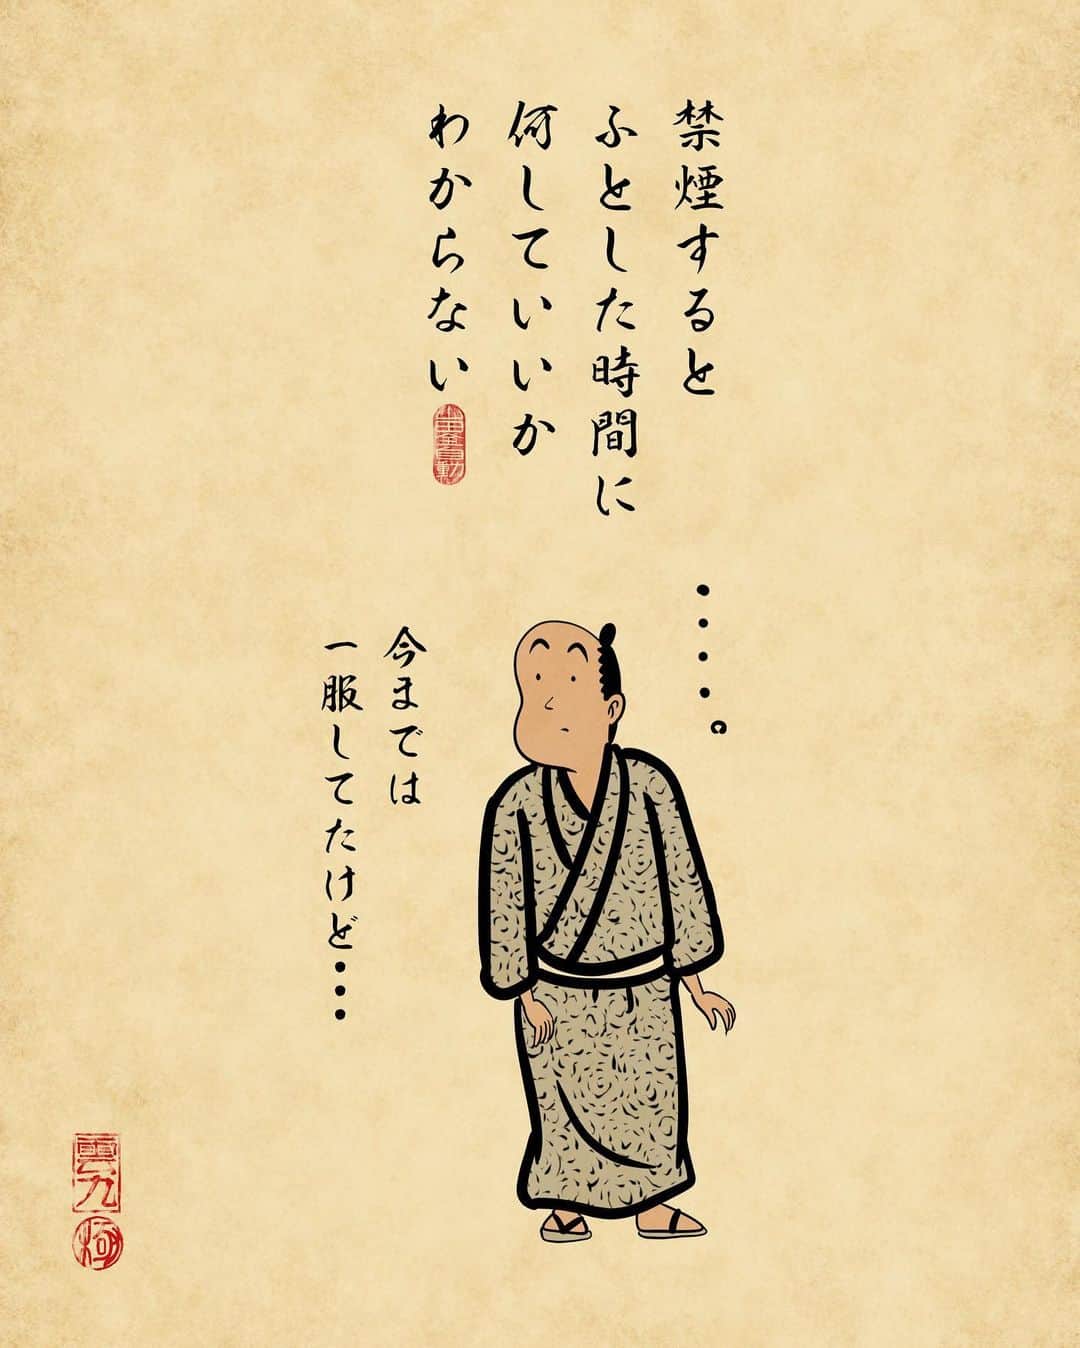 禁煙すると
ふとした時間に
何していいか
わからない
････。
今までは
一服してたけど･･･